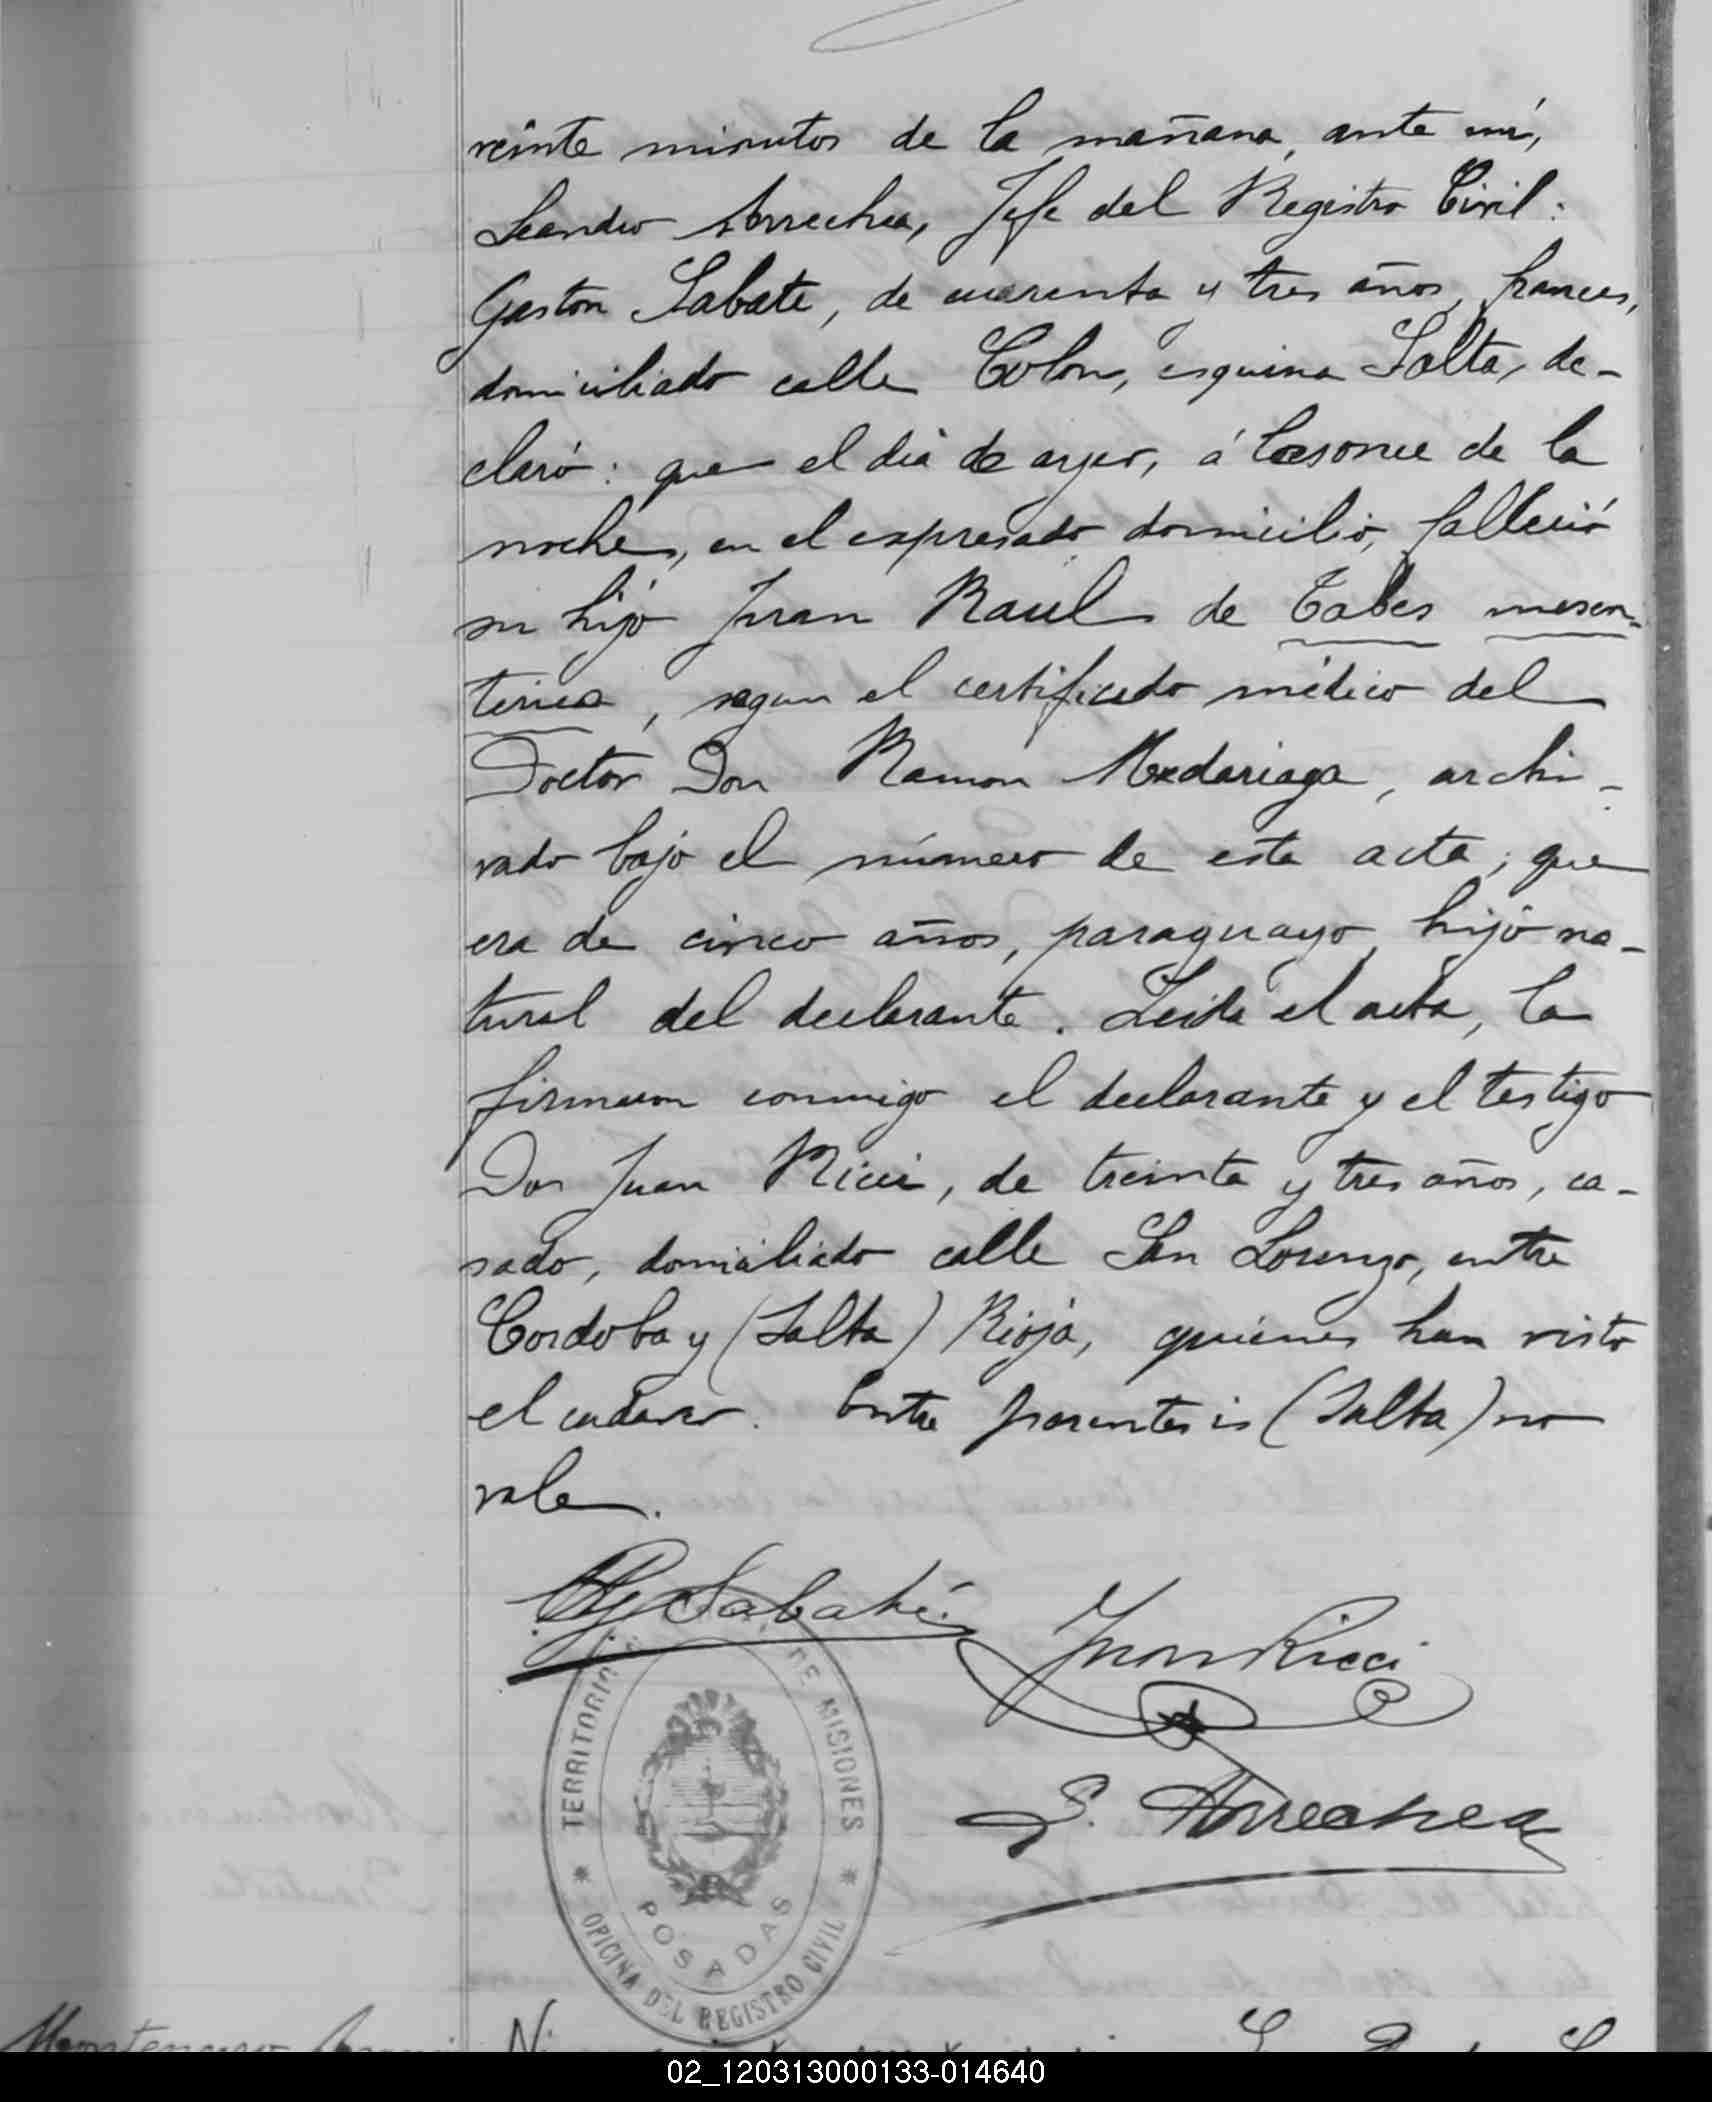 veinte minutos de la mañana, ante mí,
Leandro Arrechea, Jefe del Registro Civil:
Gaston Sabate, de cuarenta y tres años, frances,
domiciliado calle Colon, esquina Salta, de-
claró: que el dia de ayer, á las once de la
noche, en el expresado domicilio, falleció
su hijo Juan Raul de Tabes mesen-
terica, segun el certificado médico del
Doctor Don Ramon Madariaga, archi-
vado bajo el número de esta acta; que
era de cinco años, paraguayo, hijo na-
tural del declarante. Leida el acta, la
firmaron conmigo el declarante y el testigo
Don Juan Ricci, de treinta y tres años, ca-
sado, domiciliado calle San Lorenzo, entre
Cordoba y (Salta) Rioja, quienes han visto
el cadaver. Entre parentesis (Salta) no
vale.
G Sabaté
Juan Ricci
L. Arrechea
TERRITORIO DE MISIONES
POSADAS
OFICINA DEL REGISTRO CIVIL
02_120313000133-014640